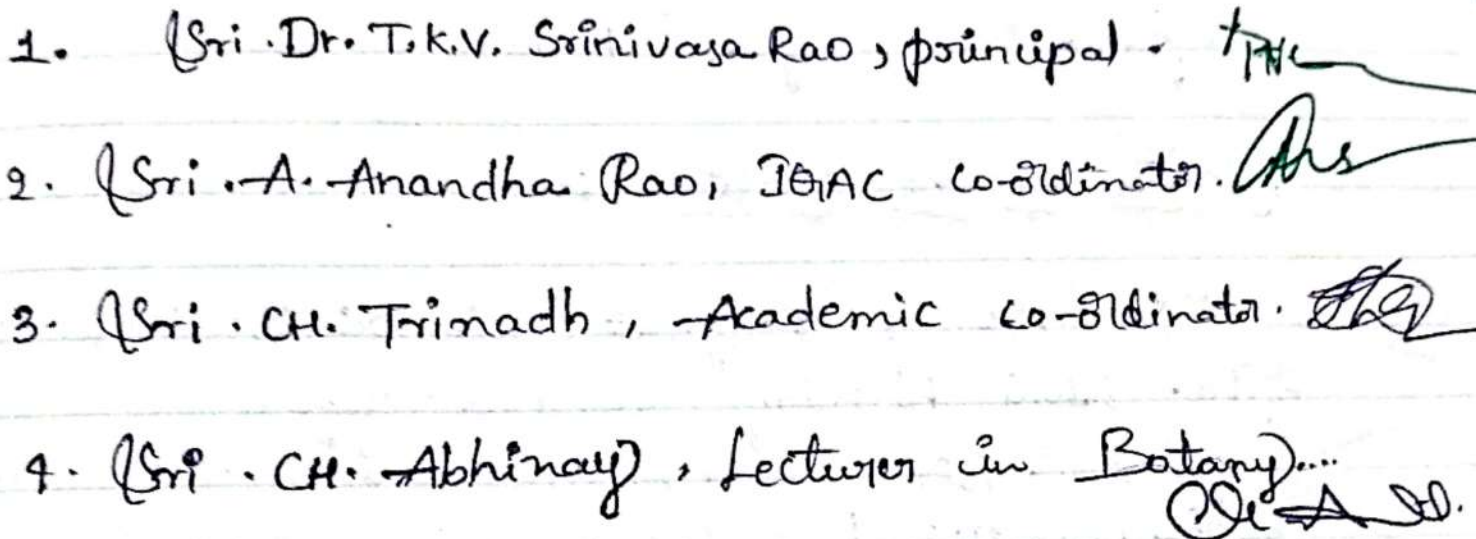 1. Sri. Dr. T.K.V. Srinivasa Rao, principal.
2. Sri. A. Anandha Rao, IQAC co-ordinator.
3. Sri. CH. Trinadh, Academic co-ordinator.
4. Sri. CH. Abhinay, Lecturer in Botany....